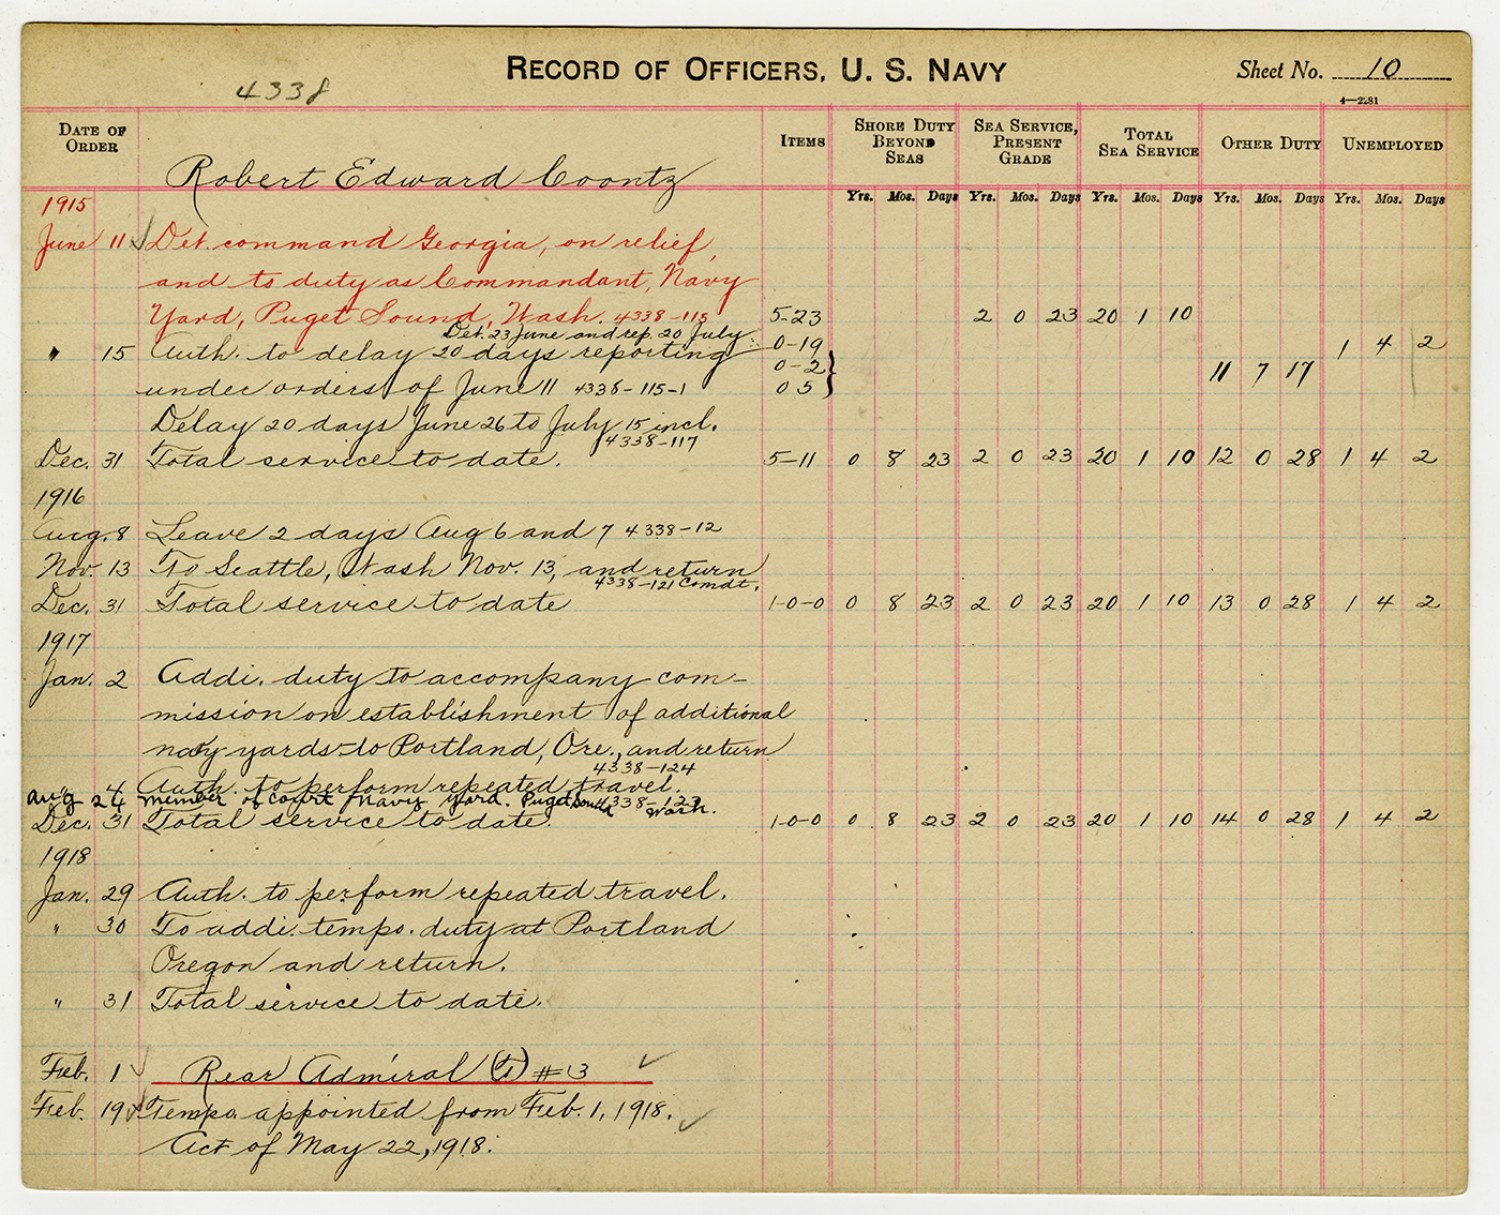 RECORD OF OFFICERS, U. S. NAVY
Sheet No. 10
4—2281
4338
DATE OF ORDER
Robert Edward Coontz
ITEMS
SHORE DUTY BEYOND SEAS
SEA SERVICE, PRESENT GRADE
TOTAL SEA SERVICE
OTHER DUTY
UNEMPLOYED
Yrs. Mos. Days Yrs. Mos. Days Yrs. Mos. Days Yrs. Mos. Days Yrs. Mos. Days
1915
June 11 Det. command Georgia, on relief,
and to duty as Commandant, Navy
Yard, Puget Sound, Wash. 4338-115 5-23 2 0 23 20 1 10
Det. 23 June and rep. 20 July.
" 15 Auth. to delay 20 days reporting 0-19 1 4 2
0-2 11 7 17
under orders of June 11 4338-115-1 0 5
Delay 20 days June 26 to July 15 incl.
4338-117
Dec. 31 Total service to date. 5-11 0 8 23 2 0 23 20 1 10 12 0 28 1 4 2
1916
Aug. 8 Leave 2 days Aug 6 and 7 4338-12
Nov. 13 To Seattle, Wash Nov. 13, and return
4338-121 Comdt.
Dec. 31 Total service to date 1-0-0 0 8 23 2 0 23 20 1 10 13 0 28 1 4 2
1917
Jan. 2 Addi. duty to accompany com-
mission on establishment of additional
navy yards to Portland, Ore., and return
4338-124
" 4 Auth. to perform repeated travel.
4338-123
Aug 24 member of court Navy Yard. Puget Sound Wash.
Dec. 31 Total service to date. 1-0-0 0 8 23 2 0 23 20 1 10 14 0 28 1 4 2
1918
Jan. 29 Auth. to perform repeated travel.
" 30 To addi. tempo. duty at Portland
Oregon and return.
" 31 Total service to date.
Feb. 1 Rear Admiral (T) #13
Feb. 19 Tempo appointed from Feb. 1, 1918.
Act of May 22, 1918.